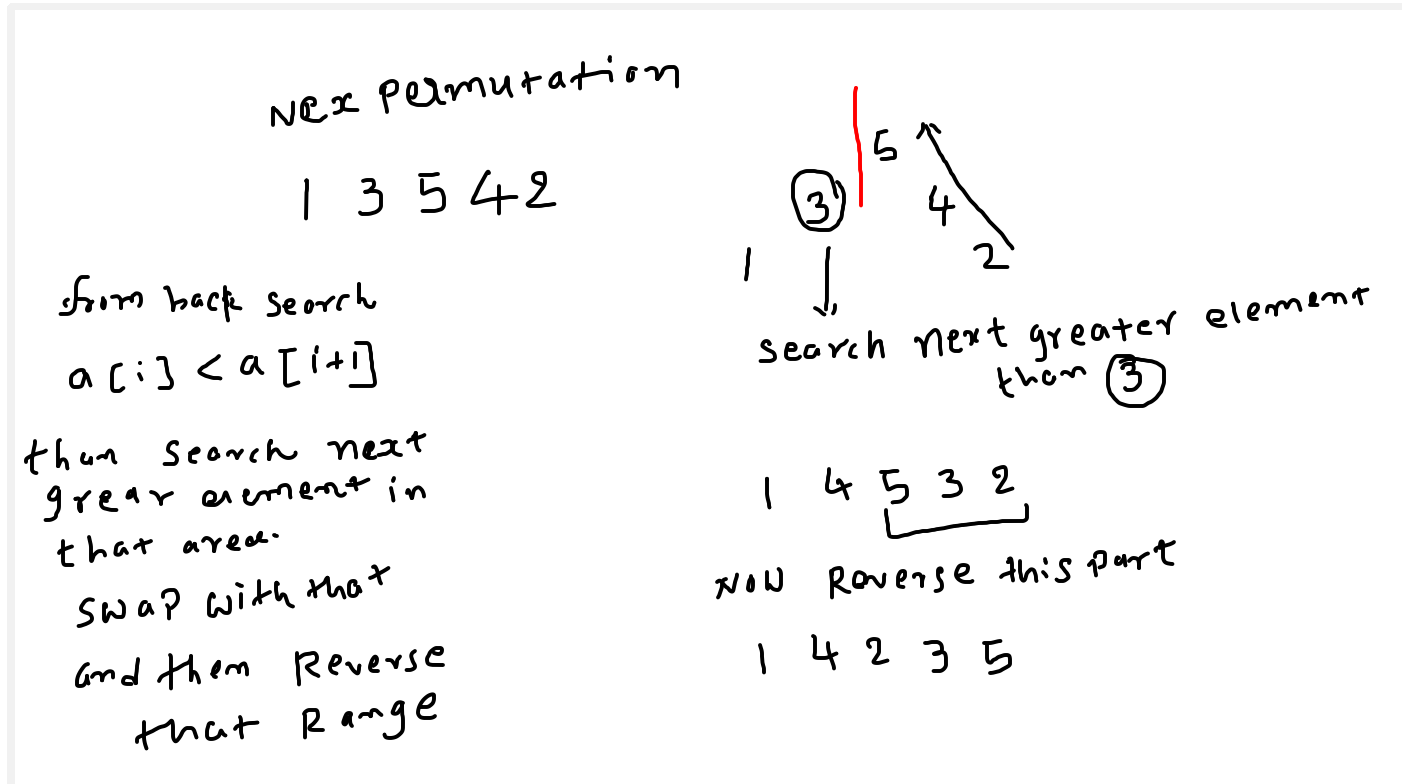 Nex Permutation
1 3 5 4 2
from back search
a[i] < a[i+1]
than search next
grear element in
that area.
swap with that
and them Reverse
that Range
5
3 4
1 2
search next greater element
than 3
1 4 5 3 2
NOW Reverse this part
1 4 2 3 5